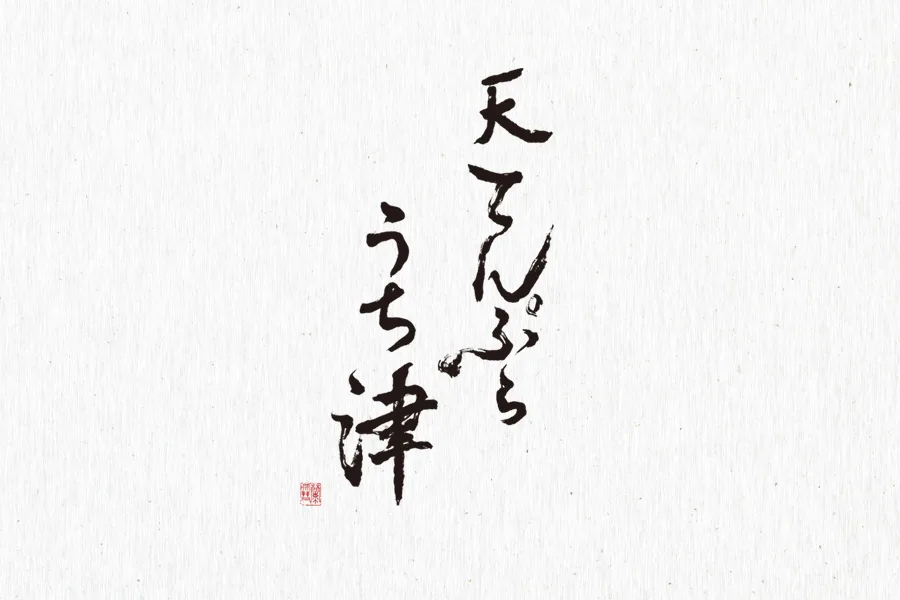 天てんぷら
うち津